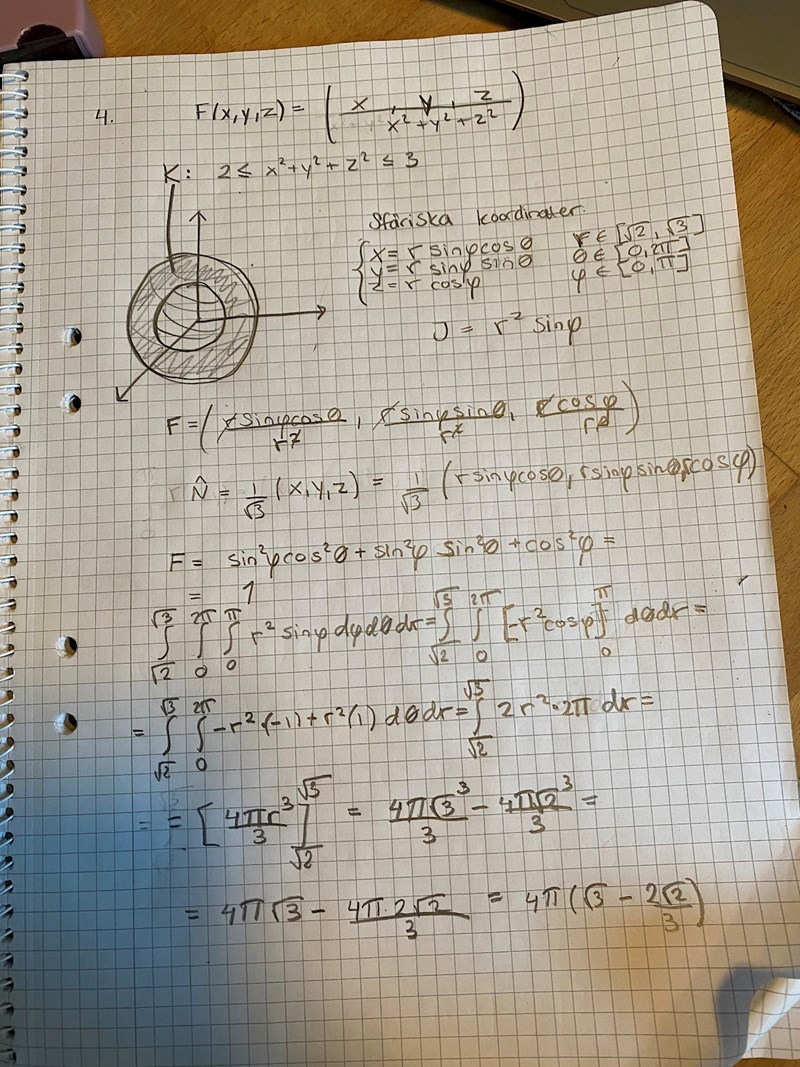 4. F(x,y,z) = (x, y, z / x² + y² + z²)
K: 2 ≤ x² + y² + z² ≤ 3
Sfäriska koordinater.
x = r sinφcosθ r ∈ [√2, √3]
y = r sinφ sinθ θ ∈ [0, 2π]
z = r cosφ φ ∈ [0, π]
J = r² sinφ
F = (r sinφcosθ / r², r sinφ sinθ / r², r cosφ / r²)
N̂ = 1/√3 (x, y, z) = 1/√3 (r sinφcosθ, r sinφ sinθ, r cosφ)
F = sin²φcos²θ + sin²φ sin²θ + cos²φ =
= 1
∫_√2^√3 ∫_0^2π ∫_0^π r² sinφ dφdθdr = ∫_√2^√3 ∫_0^2π [-r² cosφ]_0^π dθdr =
= ∫_√2^√3 ∫_0^2π -r²·(-1) + r²(1) dθdr = ∫_√2^√3 2r²·2π dr =
= = [4πr³/3]_√2^√3 = 4π√3³/3 - 4π√2³/3 =
= 4π√3 - 4π·2√2/3 = 4π(√3 - 2√2/3)